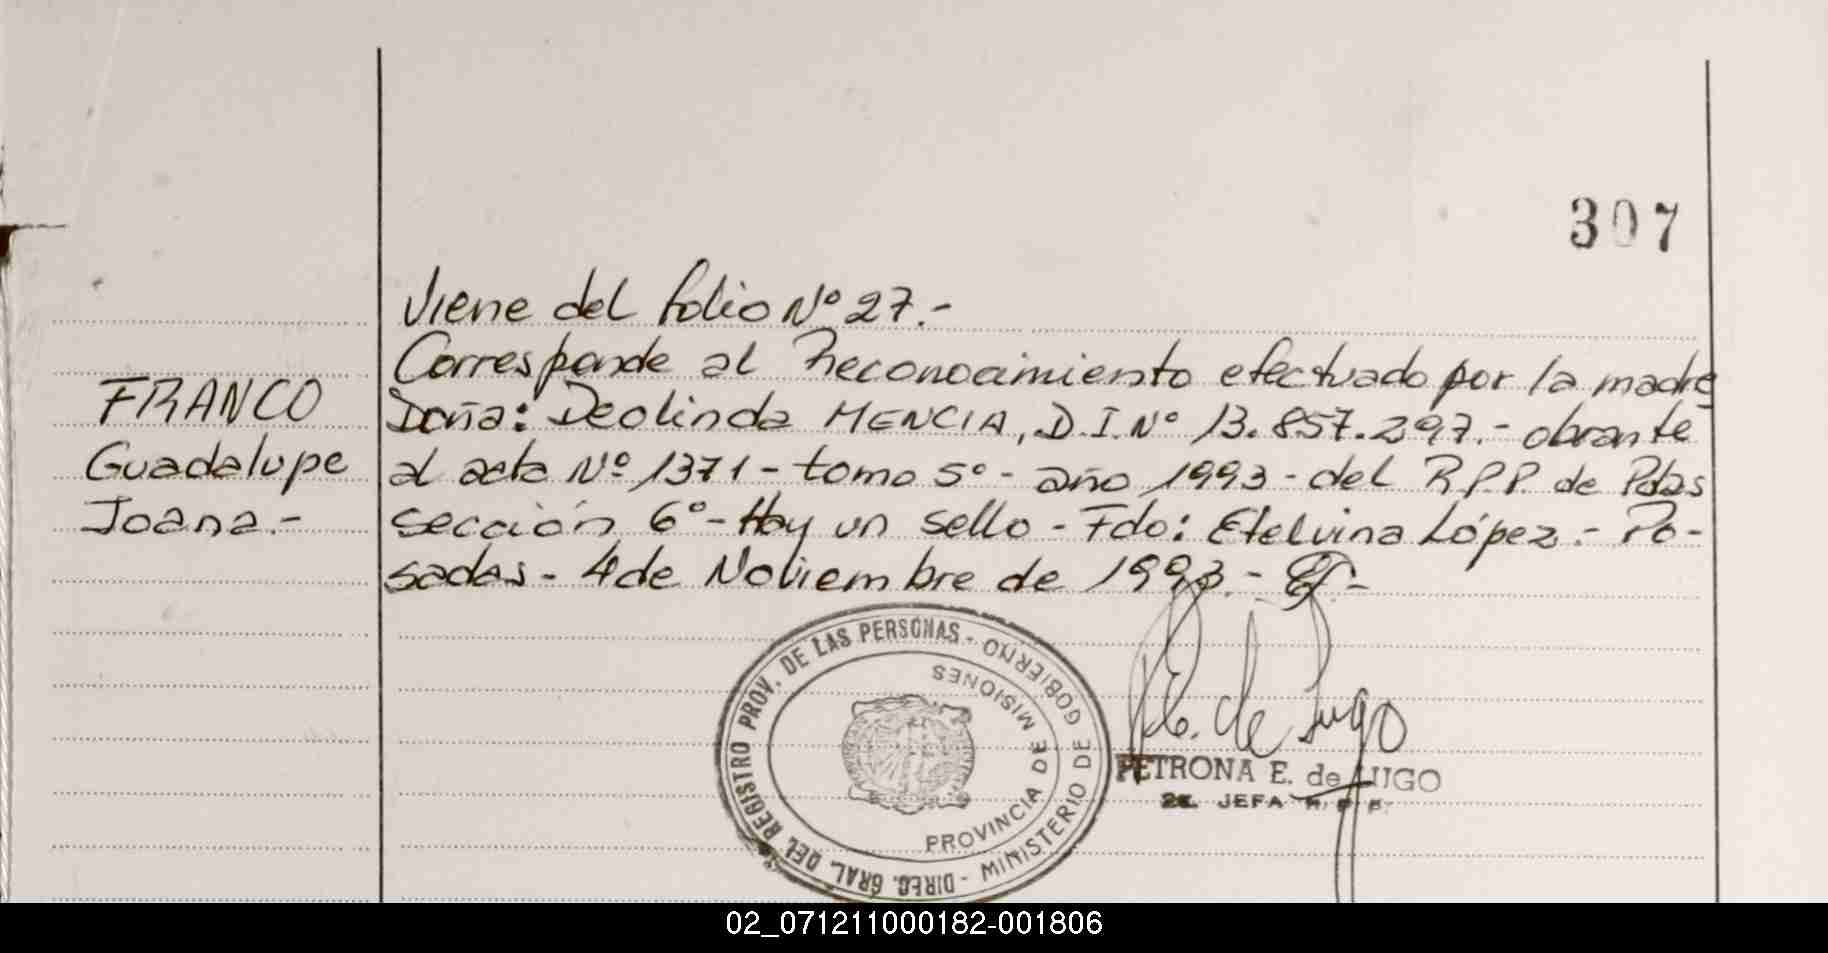 307
Viene del folio Nº 27.-
Corresponde al Reconocimiento efectuado por la madre
Doña: Deolinda MENCIA, D.I.Nº 13.857.297.- obrante
al acta Nº 1371 - tomo 5º - año 1993 - del R.P.P. de Pdas
sección 6º - Hay un sello - Fdo: Etelvina López.- Po-
sadas - 4 de Noviembre de 1993.-
FRANCO
Guadalupe
Joana.-
DIREC. GRAL. DEL REGISTRO PROV. DE LAS PERSONAS -
GOBIERNO
MISIONES
PROVINCIA DE
- MINISTERIO DE
P.E. de Lugo
PETRONA E. de LUGO
2ª JEFA R. P. P.
02_071211000182-001806